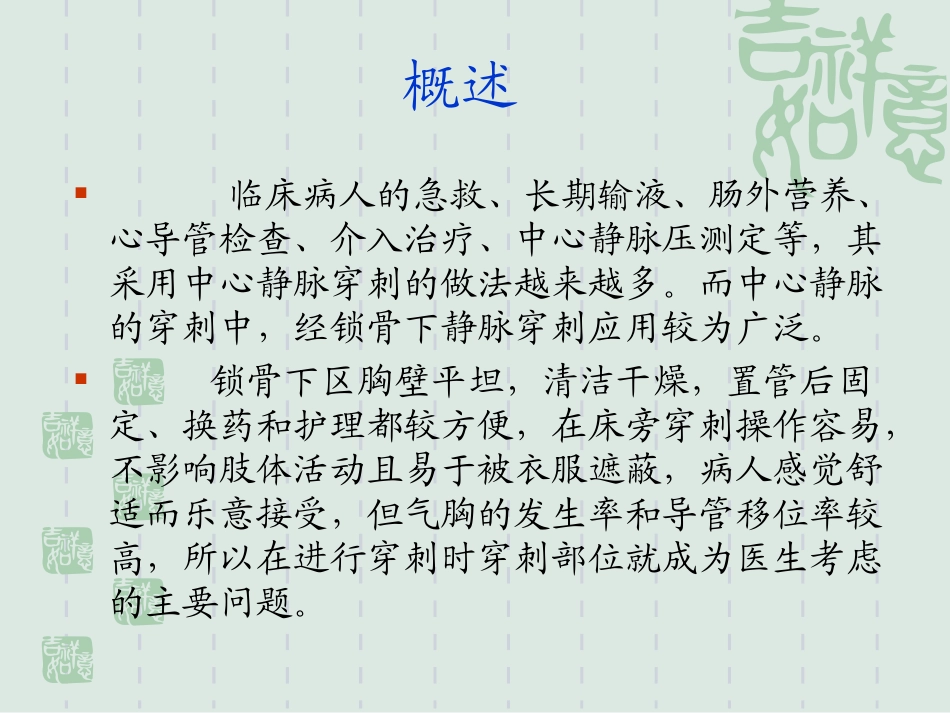 吉祥如意
概述
临床病人的急救、长期输液、肠外营养、
心导管检查、介入治疗、中心静脉压测定等，其
采用中心静脉穿刺的做法越来越多。而中心静脉
的穿刺中，经锁骨下静脉穿刺应用较为广泛。
锁骨下区胸壁平坦，清洁干燥，置管后固
定、换药和护理都较方便，在床旁穿刺操作容易，
不影响肢体活动且易于被衣服遮蔽，病人感觉舒
适而乐意接受，但气胸的发生率和导管移位率较
高，所以在进行穿刺时穿刺部位就成为医生考虑
的主要问题。
吉祥如意
吉祥如意
吉祥如意
吉祥如意
吉祥如意
吉祥如意